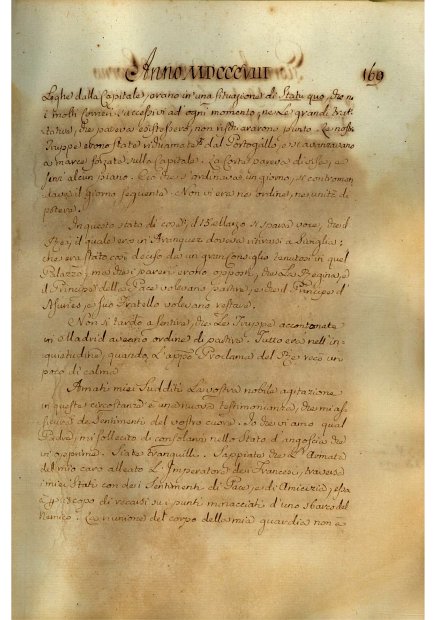 Anno MDCCCVIII 169
Leghe dalla Capitale, erano in una situazione di Statu quo, che
molti Corrieri successivi ad ogni momento, che le grandi
trattative, che pareva esistessero, non rischiararono punto. Le
Truppe erano state richiamate dal Portogallo, e si avanzavano
a marce forzate sulla Capitale. La Corte pareva divisa, e
senz'alcun piano. Ciò che s'ordinava un giorno, si
il giorno seguente. Non vi era nè ordine, nè unità di
potere.
In questo stato di cose, il 15 Marzo si sparse voce, che il
Re, il quale era in Aranquez doveva ritirarsi a Siviglia;
che era stato così deciso da un gran Consiglio tenutosi in quel
Palazzo, ma che i pareri erano opposti, che la Regina, e
il Principe della Pace volevano partire, e che il Principe d'
Asturies, e suo Fratello volevano restare.
Non si tardò a sentire, che le Truppe accantonate
in Madrid aveano ordine di partire. Tutto era nell'in-
quietudine, quando l'appo Proclama del Re recò un
poco di calma
Amati miei Sudditi. La vostra nobile agitazione
in queste circostanze è una nuova testimonianza, che mi as-
sicura de Sentimenti del vostro cuore. Io che vi amo qual
Padre, mi sollecito di consolarvi nello Stato d'angoscia che
vi opprime. Siate tranquilli. Sappiate che l'Armata
del mio caro alleato l'Imperatore dei Francesi, traversa
i miei Stati con dei Sentimenti di Pace, e di Amicizia. essa
à per iscopo di recarsi su i punti minacciati d'uno sbarco del
Nemico. La riunione del corpo della mia guardia non à